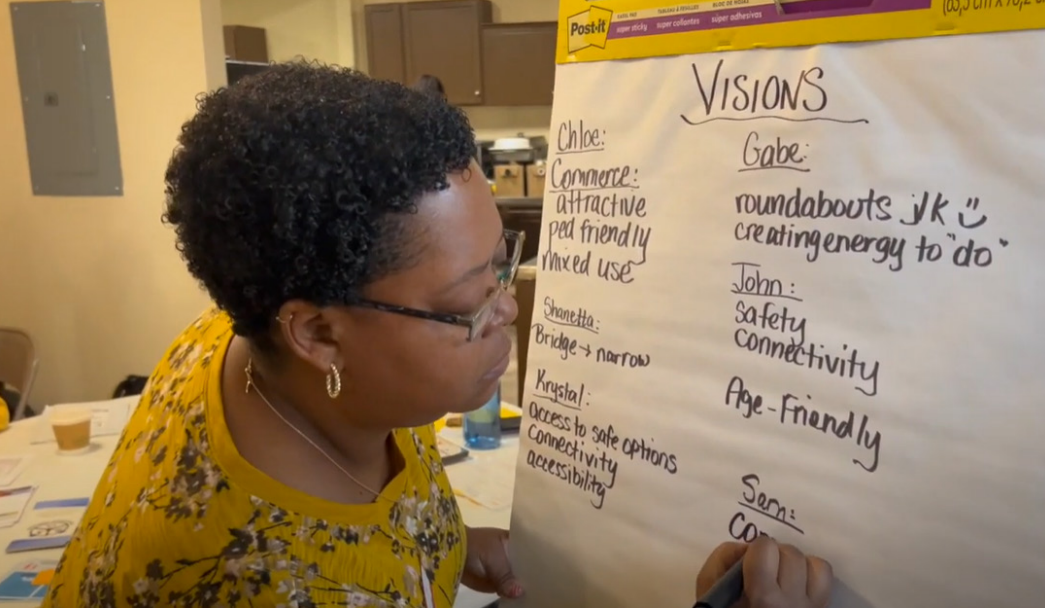 Post-it
super sticky
super collantes
súper adhesivas
VISIONS
Chloe:
Commerce:
attractive
ped friendly
mixed use
Shanetta:
Bridge → narrow
Krystal:
access to safe options
connectivity
accessibility
Gabe:
roundabouts j/k
creating energy to "do"
John:
safety
connectivity
Age-Friendly
Sam: